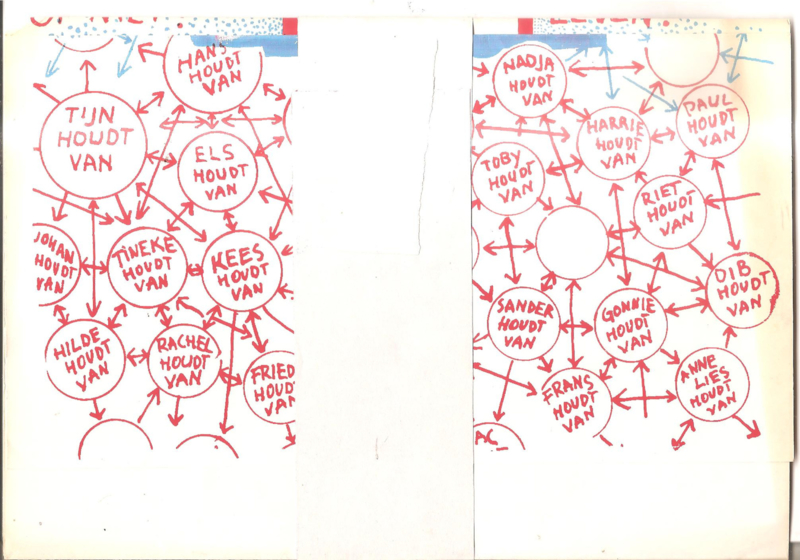 HANS
HOUDT
VAN
TIJN
HOUDT
VAN
ELS
HOUDT
VAN
JOHAN
HOUDT
VAN
TINEKE
HOUDT
VAN
KEES
HOUDT
VAN
HILDE
HOUDT
VAN
RACHEL
HOUDT
VAN
FRIED
HOUD
VAN
NADJA
HOUDT
VAN
HARRIE
HOUDT
VAN
PAUL
HOUDT
VAN
TOBY
HOUDT
VAN
RIET
HOUDT
VAN
DIB
HOUDT
VAN
SANDER
HOUDT
VAN
GONNIE
HOUDT
VAN
FRANS
HOUDT
VAN
ANNE
LIES
HOUDT
VAN